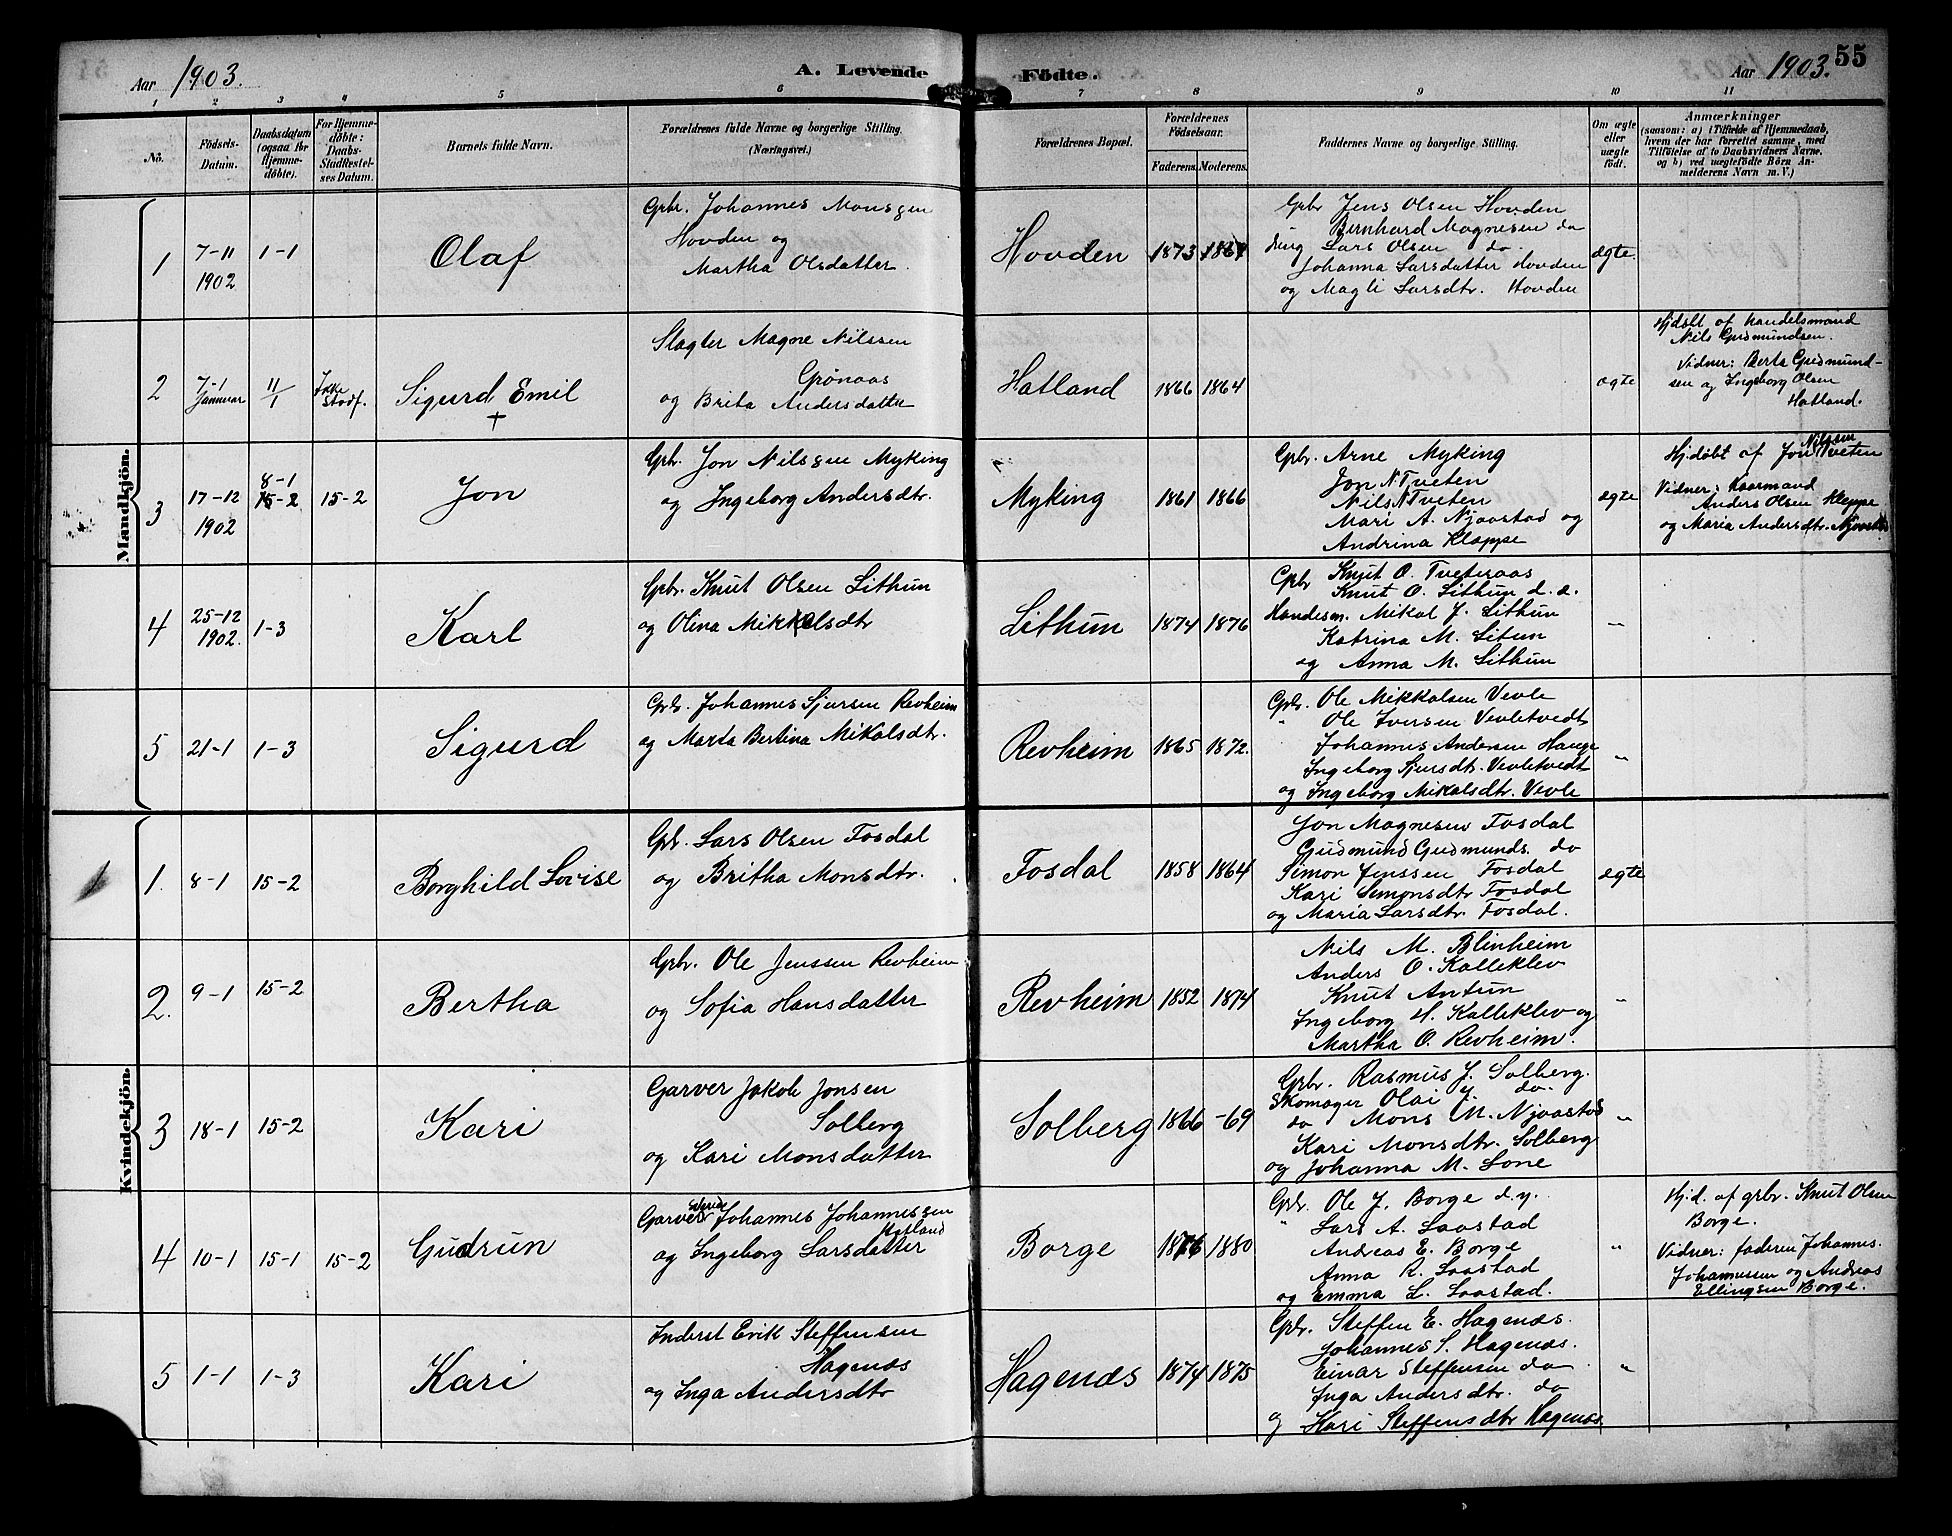 Aar 1903.
A. Levende Födte.
Aar 1903. 55
1 2 3 4 5 6 7 8 9 10 11
No.
Födsels-Datum.
Daabsdatum (ogsaa for Hjemmedöbte).
For Hjemmedöbte: Daabs-Stadfæstelses Datum.
Barnets fulde Navn.
Forældrenes fulde Navne og borgerlige Stilling. (Næringsvei.)
Forældrenes Bopæl.
Forældrenes Födselsaar.
Faderens. Moderens.
Faddernes Navne og borgerlige Stilling.
Om ægte eller uægte födt.
Anmærkninger
(saasom: a) i Tilfælde af Hjemmedaab, hvem der har forrettet samme, med Tilföielse af to Daabsvidners Navne, og b) ved uægtefödte Börn Anmelderens Navn m. V.)
Mandkjön.
1
7-11
1902
1-1
Olaf
Gbr. Johannes Monssen
Hovden og
Martha Olsdatter.
Hovden
1873
1864
Gbr Jens Olsen Hovden
Bernhard Magnesen do
Lars Olsen do.
Johanna Larsdatter Hovden
og Magli Larsdtr. Hovden
ægte.
2
7-1
Januar
11/1
Ikke
stadf.
Sigurd Emil
†
Slagter Magne Nilssen
Grönaas
og Brita Andersdatter
Hatland
1866
1864
ægte
Hjdöbt af handelsmand
Nils Gudmundsen.
Vidner: Berta Gudmund-
sen og Ingeborg Olsen
Hatland.
3
17-12
1902
8-1
15-2
15-2
Jon
Gbr. Jon Nilssen Myking
og Ingeborg Andersdtr.
Myking
1861
1866
Gbr. Arne Myking
Jon N Tveten
Nils N Tveten
Mari A. Njaastad og
Andrina Kleppe
ægte
Hj.döbt af Jon Nilssen Tveten
Vidner: Kaarmand
Anders Olsen Kleppe
og Maria Andersdtr. Njaastad
4
25-12
1902.
1-3
Karl
Gbr. Knut Olsen Lithun
og Olina Mikkelsdtr
Lithun
1874
1876
Gbr Knut O. Tveteraas
Knut O. Lithun d. e.
Handesm. Mikal J. Lithun
Katrina M. Litun
og Anna M. Lithun
"
5
21-1
1-3
Sigurd
Gbr. Johannes Sjursen Revheim
og Marta Bertina Mikalsdtr.
Revheim
1865
1872.
Gbr. Ole Mikkalsen Vevle
" Ole Iversen Vevletvedt
Johannes Andersen Hauge
Ingeborg Sjursdtr. Vevletvedt
og Ingeborg Mikalsdtr. Vevle
"
Kvindekjön.
1.
8-1
15-2
Borghild Lovise
Gbr. Lars Olsen Fosdal
og Britha Monsdtr.
Fosdal
1858
1864
Jon Magnesen Fosdal
Gudmund Gudmunds. do
Simon Jenssen Fosdal
Kari Simonsdtr Fosdal
og Maria Larsdtr. Fosdal.
ægte
2.
9-1
15-2
Bertha
Gbr. Ole Jenssen Revheim
og Sofia Hansdatter
Revheim
1852
1874
Nils M. Blinheim
Anders O. Kalleklev
Knut Antun
Ingeborg H. Kalleklev og
Martha O. Revheim.
"
3
18-1
15-2
Kari
Garver Jakob Jonsen
Solberg
og Kari Monsdatter
Solberg
1866
-69
Gbr. Rasmus J. Solberg.
Skomager Olai J. do.
do Mons M. Njaastad
Kari Monsdtr. Solberg
og Johanna M. Lone
"
4
10-1
15-1
15-2
Gudrun
Garver Johannes Johannessen
Hatland
og Ingeborg Larsdatter
Borge
1876
1880
Gbr. Ole J. Borge d.y.
" Lars A. Laastad
Andreas E. Borge
Anna R. Laastad
og Emma L. Laastad.
"
Hj.d. af grbr. Knut Olsen
Borge.
Vidner: faderen Johannes.
Johannessen og Andreas
Ellingsen Borge.
5
1-1
1-3
Kari
Inderst Erik Steffensen
Hagenæs
og Inga Andersdtr
Hagenæs
1874
1875
Gbr. Steffen E. Hagenæs.
Johannes S. Hagenæs.
Einar Steffensen do
Inga Andersdtr. do
og Kari Steffensdtr Hagenæs.
"